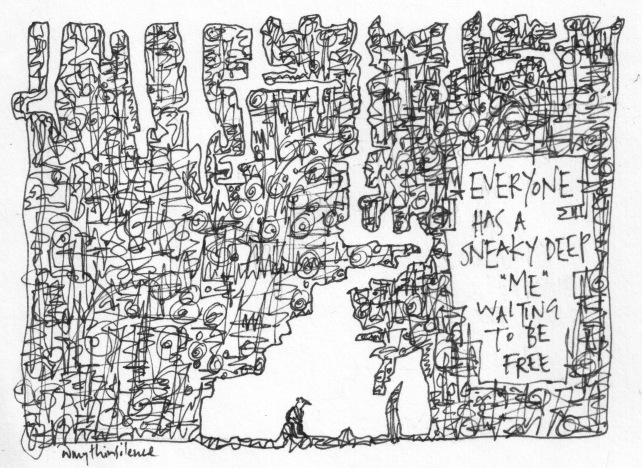 EVERYONE
HAS A
SNEAKY DEEP
"ME"
WAITING
TO BE
FREE